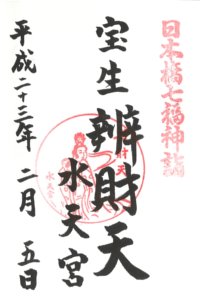 日本橋七福神詣
宝生辨財天
水天宮
平成二十三年 二月 五日
財天
水天宮